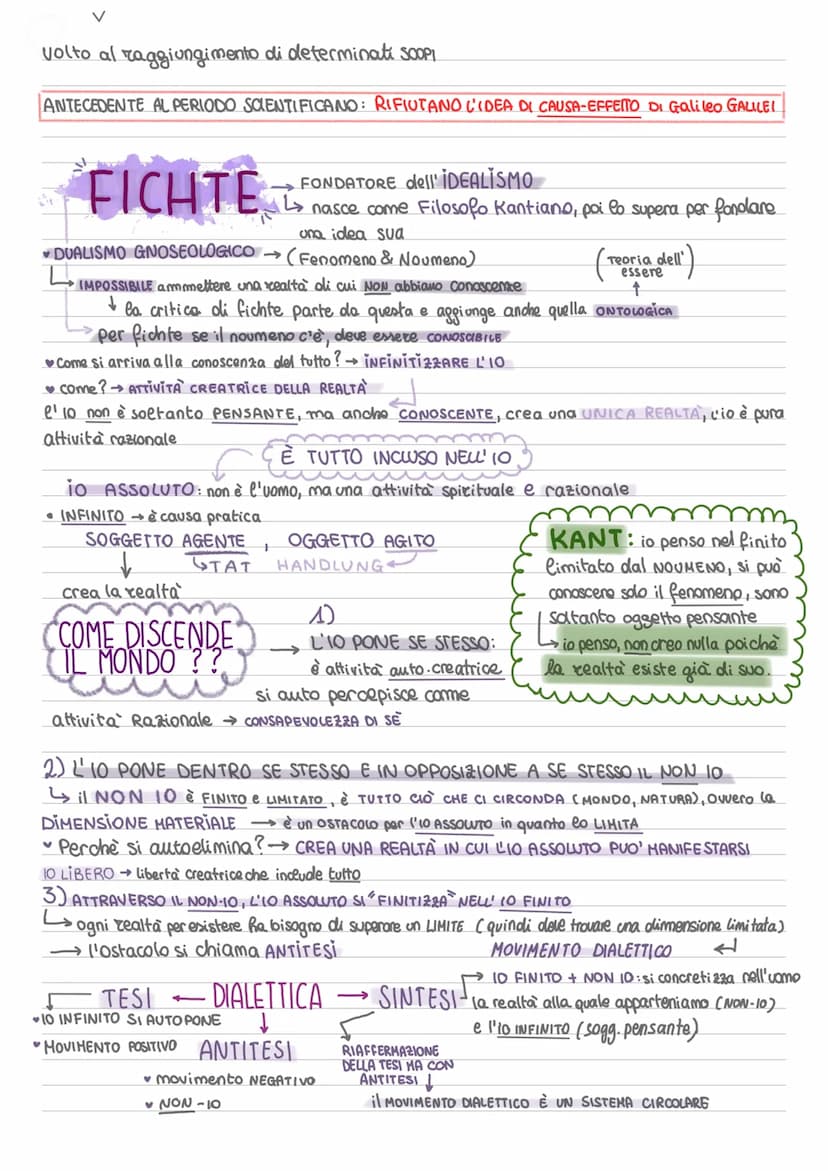 volto al raggiungimento di determinati SCOPI
ANTECEDENTE AL PERIODO SCIENTIFICANO: RIFIUTANO L'IDEA DI CAUSA-EFFETTO DI GALILEO GALILEI
FICHTE → FONDATORE dell'IDEALISMO
↳ nasce come Filosofo Kantiano, poi lo supera per fondare
una idea sua
♥ DUALISMO GNOSEOLOGICO → (Fenomeno & Noumeno)
(Teoria dell'
essere)
↳ IMPOSSIBILE ammmettere una realtà di cui NON abbiamo conoscenze
↓ la critica di fichte parte da questa e aggiunge anche quella ONTOLOGICA
per fichte se il noumeno c'è, deve essere CONOSCIBILE
♥ Come si arriva alla conoscenza del tutto? → INFINITIZZARE L'IO
♥ come? → ATTIVITÀ CREATRICE DELLA REALTÀ
l'IO non è soltanto PENSANTE, ma anche CONOSCENTE, crea una UNICA REALTÀ, l'io è pura
attività razionale
È TUTTO INCLUSO NELL'IO
IO ASSOLUTO: non è l'uomo, ma una attività spirituale e razionale
• INFINITO → è causa pratica
SOGGETTO AGENTE, OGGETTO AGITO
↳ TAT HANDLUNG
crea la realtà
KANT: io penso nel finito
limitato dal NOUMENO, si può
conoscere solo il fenomeno, sono
soltanto oggetto pensante
↳ io penso, non creo nulla poichè
la realtà esiste già di suo.
COME DISCENDE
IL MONDO ??
→ 1)
L'IO PONE SE STESSO:
è attività auto-creatrice
si auto percepisce come
attività Razionale → CONSAPEVOLEZZA DI SÈ
2) L'IO PONE DENTRO SE STESSO E IN OPPOSIZIONE A SE STESSO IL NON IO
↳ il NON IO è FINITO e LIMITATO, è TUTTO CIÒ CHE CI CIRCONDA (MONDO, NATURA), ovvero la
DIMENSIONE MATERIALE → è un OSTACOLO per l'IO ASSOLUTO in quanto lo LIMITA
♥ Perchè si autoelimina? → CREA UNA REALTÀ IN CUI L'IO ASSOLUTO PUO' MANIFESTARSI
IO LIBERO → libertà creatrice che include tutto
3) ATTRAVERSO IL NON-IO, L'IO ASSOLUTO SI "FINITIZZA" NELL' IO FINITO
↳ ogni realtà per esistere ha bisogno di superare un LIMITE (quindi deve trovare una dimmensione limitata)
→ l'ostacolo si chiama ANTITESI
MOVIMENTO DIALETTICO ↵
TESI ← DIALETTICA → SINTESI
→ IO FINITO + NON IO: si concretizza nell'uomo
la realtà alla quale apparteniamo (NON-IO)
e l'IO INFINITO (sogg. pensante)
♥ IO INFINITO SI AUTOPONE
♥ MOVIMENTO POSITIVO
↓
ANTITESI
♥ movimento NEGATIVO
♥ NON-IO
RIAFFERMAZIONE
DELLA TESI MA CON
ANTITESI ↓
il MOVIMENTO DIALETTICO È UN SISTEMA CIRCOLARE